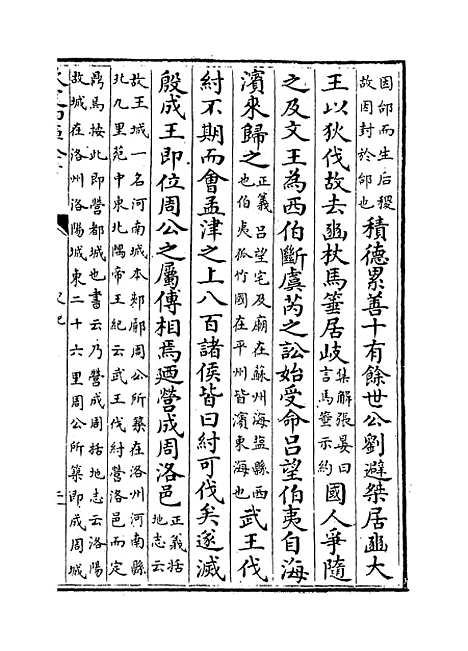 因邰而生后稷
故因封於邰也
積德累善十有餘世公劉避桀居豳大
王以狄伐故去豳杖馬箠居岐
集解張晏曰
言馬箠示約
國人爭隨
之及文王為西伯斷虞芮之訟始受命呂望伯夷自海
濱來歸之
正義呂望宅及廟在蘇州海鹽縣西
也伯夷孤竹國在平州皆濱東海也
武王伐
紂不期而會孟津之上八百諸侯皆曰紂可伐矣遂滅
殷成王即位周公之屬傅相焉廼營成周洛邑
正義括
地志云
故王城一名河南城本郟鄏周公所築在洛州河南縣
北九里苑中東北隅帝王紀云武王伐紂營洛邑而定
鼎焉按此即營都城也書云乃營成周括地志云洛陽
故城在洛州洛陽城東二十六里周公所築即成周城